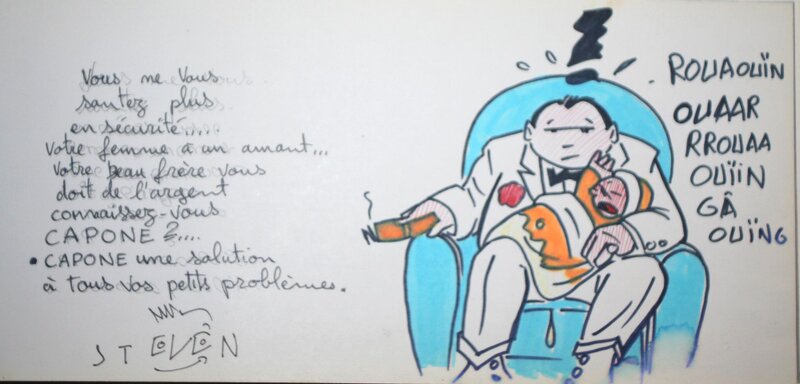 Vous ne vous
sentez plus
en sécurité....
votre femme a un amant...
votre beau frère vous
doit de l'argent
connaissez-vous
CAPONE ?....
• CAPONE une solution
à tous vos petits problèmes.
STEVEN
ROUAOUÏN
OUAAR
RROUAA
OUÏIN
GÂ
OUÏNG